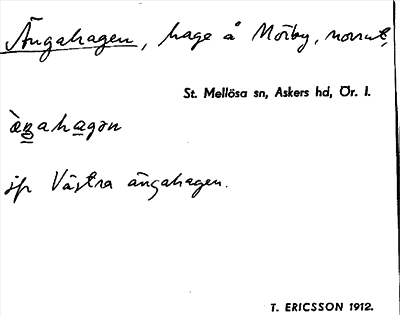 Ängahagen, hage å Mörby, norrut,
St. Mellösa sn, Askers hd, Ör. l.
àŋahagən
jfr Västra ängahagen.
T. ERICSSON 1912.